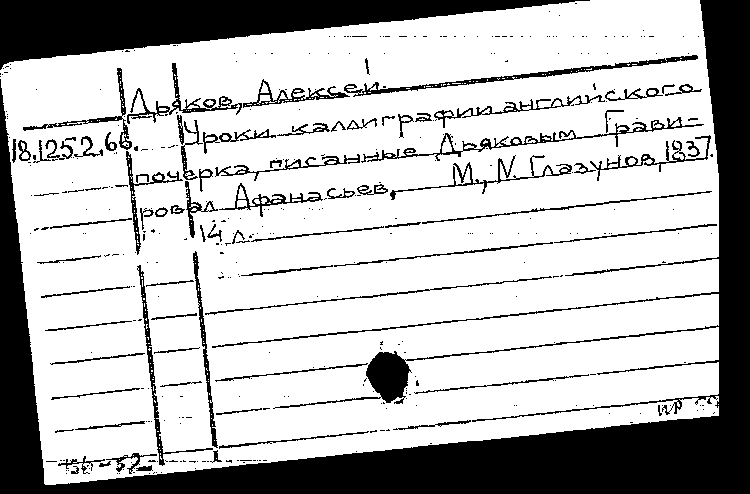 Дьяков, Алексей.
18.1252.66. Уроки каллиграфии английского
почерка, писанные Дьяковым Грави-
ровал Афанасьев, М., И. Глазунов, 1837.
14 л.
156-52